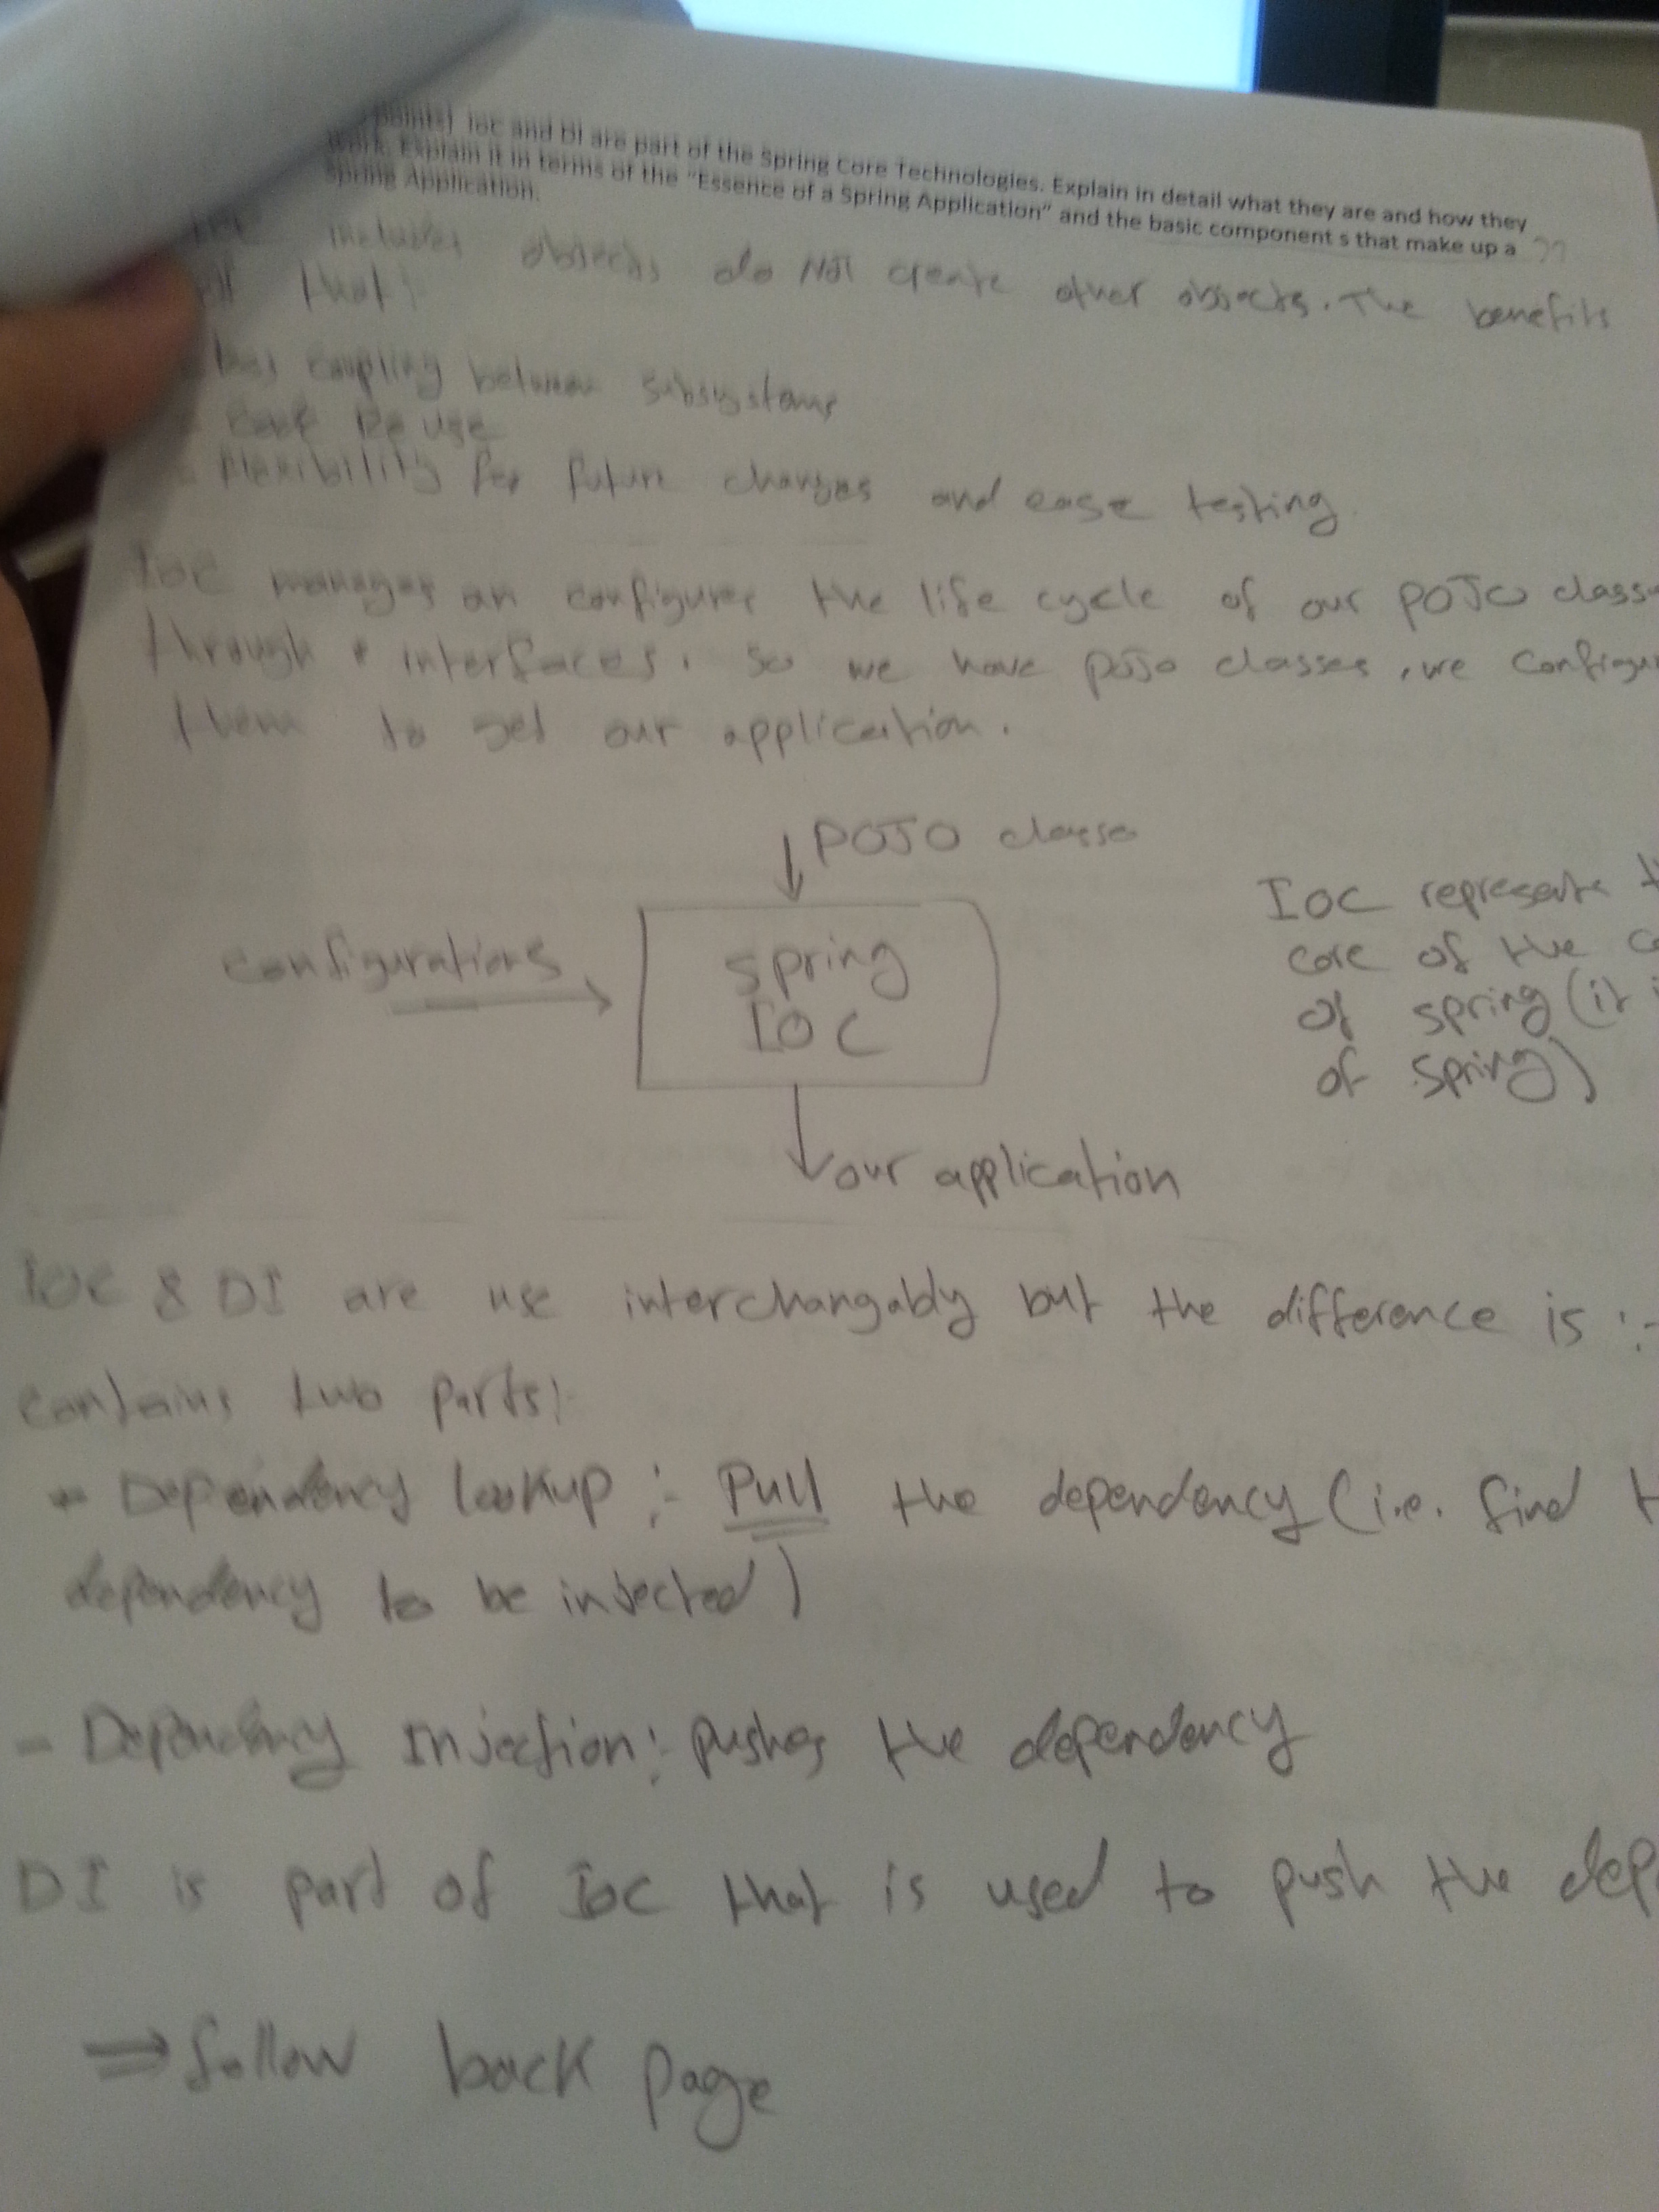 points) Ioc and DI are part of the Spring Core Technologies. Explain in detail what they are and how they
work. Explain it in terms of the "Essence of a Spring Application" and the basic component s that make up a
Spring Application.
includes objects do NOT create other objects. The benefits
of that:
less coupling between subsystems
Code Re use
flexibility for future changes and ease testing.
IOC manages an configures the life cycle of our POJO
through interfaces. so we have POJO classes, we
them to get our application.
POJO classes
configurations
spring
IOC
our application
IOC represents
core of the
of spring (it
of spring)
IOC & DI are use interchangably but the difference is :-
contains two parts:
- Dependency lookup :- Pull the dependency (i.e. find
dependency to be injected)
- Dependency Injection :- pushes the dependency
DI is part of IOC that is used to push the dep
⇒ follow back page